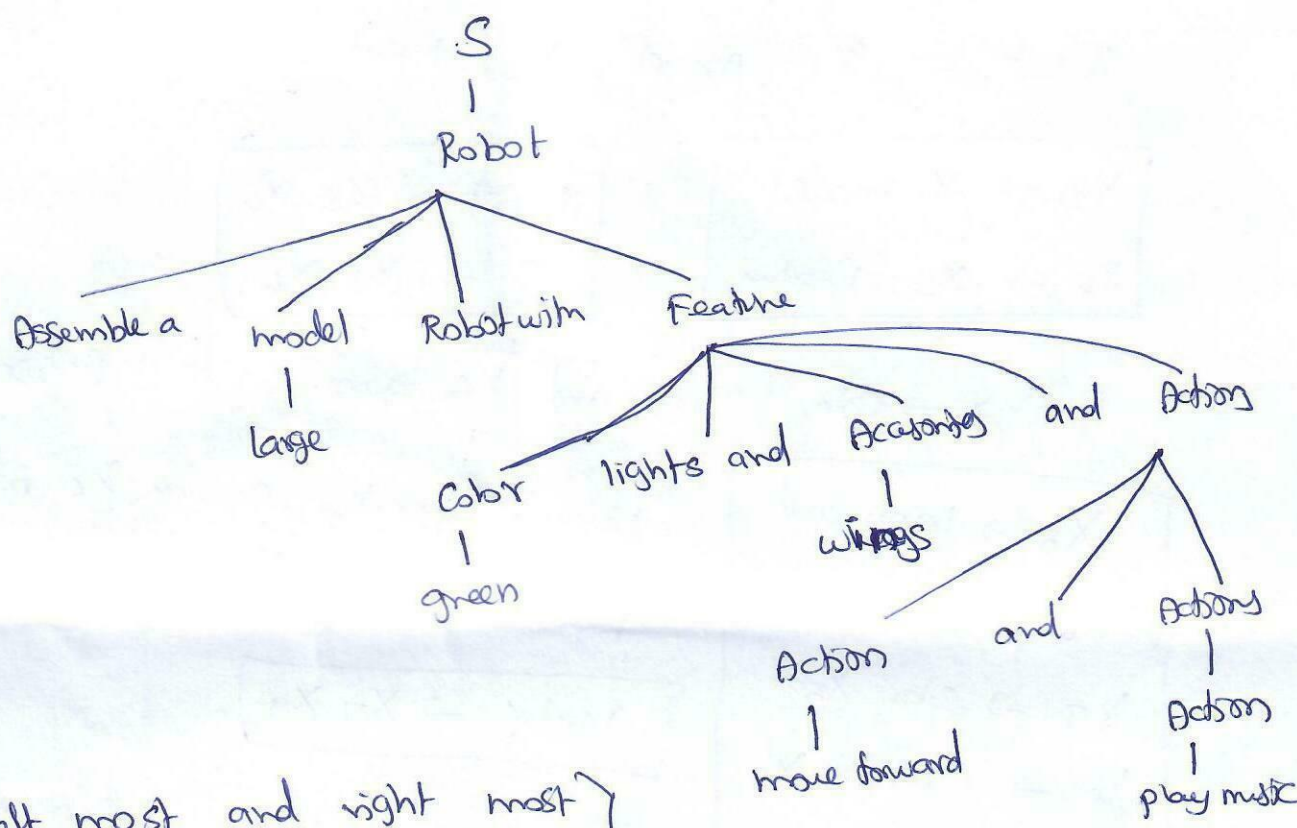 S
Robot
Assemble a model Robot with Feature
large
Color lights and Accasories and Action
green wings
Action and Actions
move forward Action
play music
left most and right most }